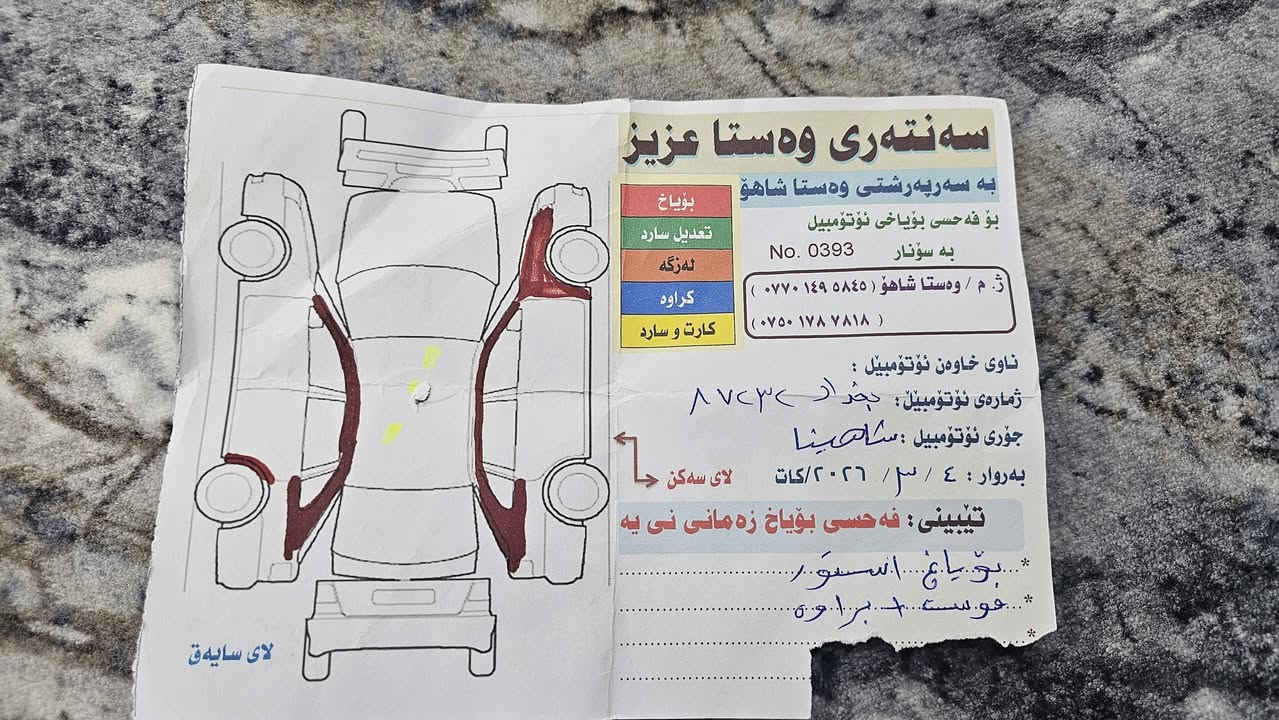 سەنتەری وەستا عزیز
بە سەرپەرشتی وەستا شاهۆ
بۆ فەحسی بۆیاخی ئۆتۆمبیل
بە سۆنار No. 0393
ژ. م / وەستا شاهۆ ( ٠٧٧٠ ١٤٩ ٥٨٤٥ )
( ٠٧٥٠ ١٧٨ ٧٨١٨ )
بۆیاخ
تعدیل سارد
لەزگە
کراوە
کارت و سارد
ناوی خاوەن ئۆتۆمبێل :
ژمارەی ئۆتۆمبێل:
جۆری ئۆتۆمبیل : شاهینا
بەروار : ٤ / ٣ / ٢٠٢٦/کات
لای سەکن
تێبینی: فەحسی بۆیاخ زەمانی نی یە
* بۆیاغ
* براوە
*
لای سایەق